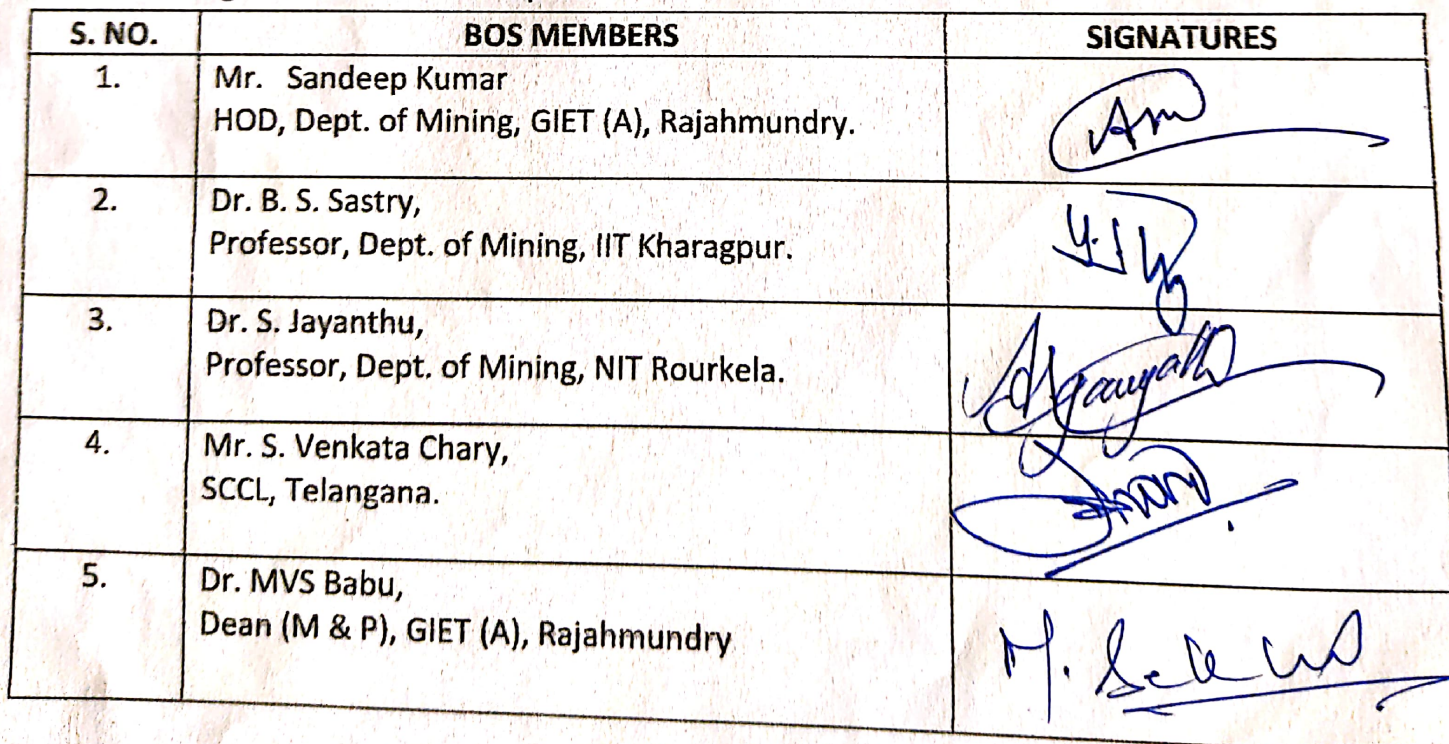 S. NO. BOS MEMBERS SIGNATURES
1. Mr. Sandeep Kumar
HOD, Dept. of Mining, GIET (A), Rajahmundry.
2. Dr. B. S. Sastry,
Professor, Dept. of Mining, IIT Kharagpur.
3. Dr. S. Jayanthu,
Professor, Dept. of Mining, NIT Rourkela.
4. Mr. S. Venkata Chary,
SCCL, Telangana.
5. Dr. MVS Babu,
Dean (M & P), GIET (A), Rajahmundry